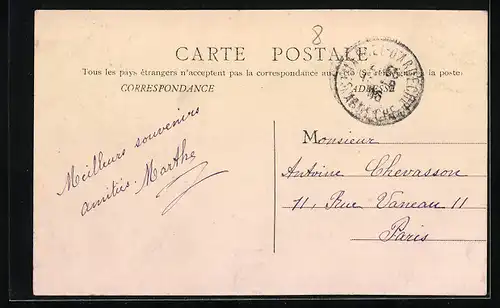 8
CARTE POSTALE
Tous les pays étrangers n'acceptent pas la correspondance au la poste
CORRESPONDANCE
ADRESSE
ARDECHE
Meilleurs souvenirs
amitiés. Marthe
Monsieur
Antoine Chevasson
11, Rue Vaneau 11
Paris